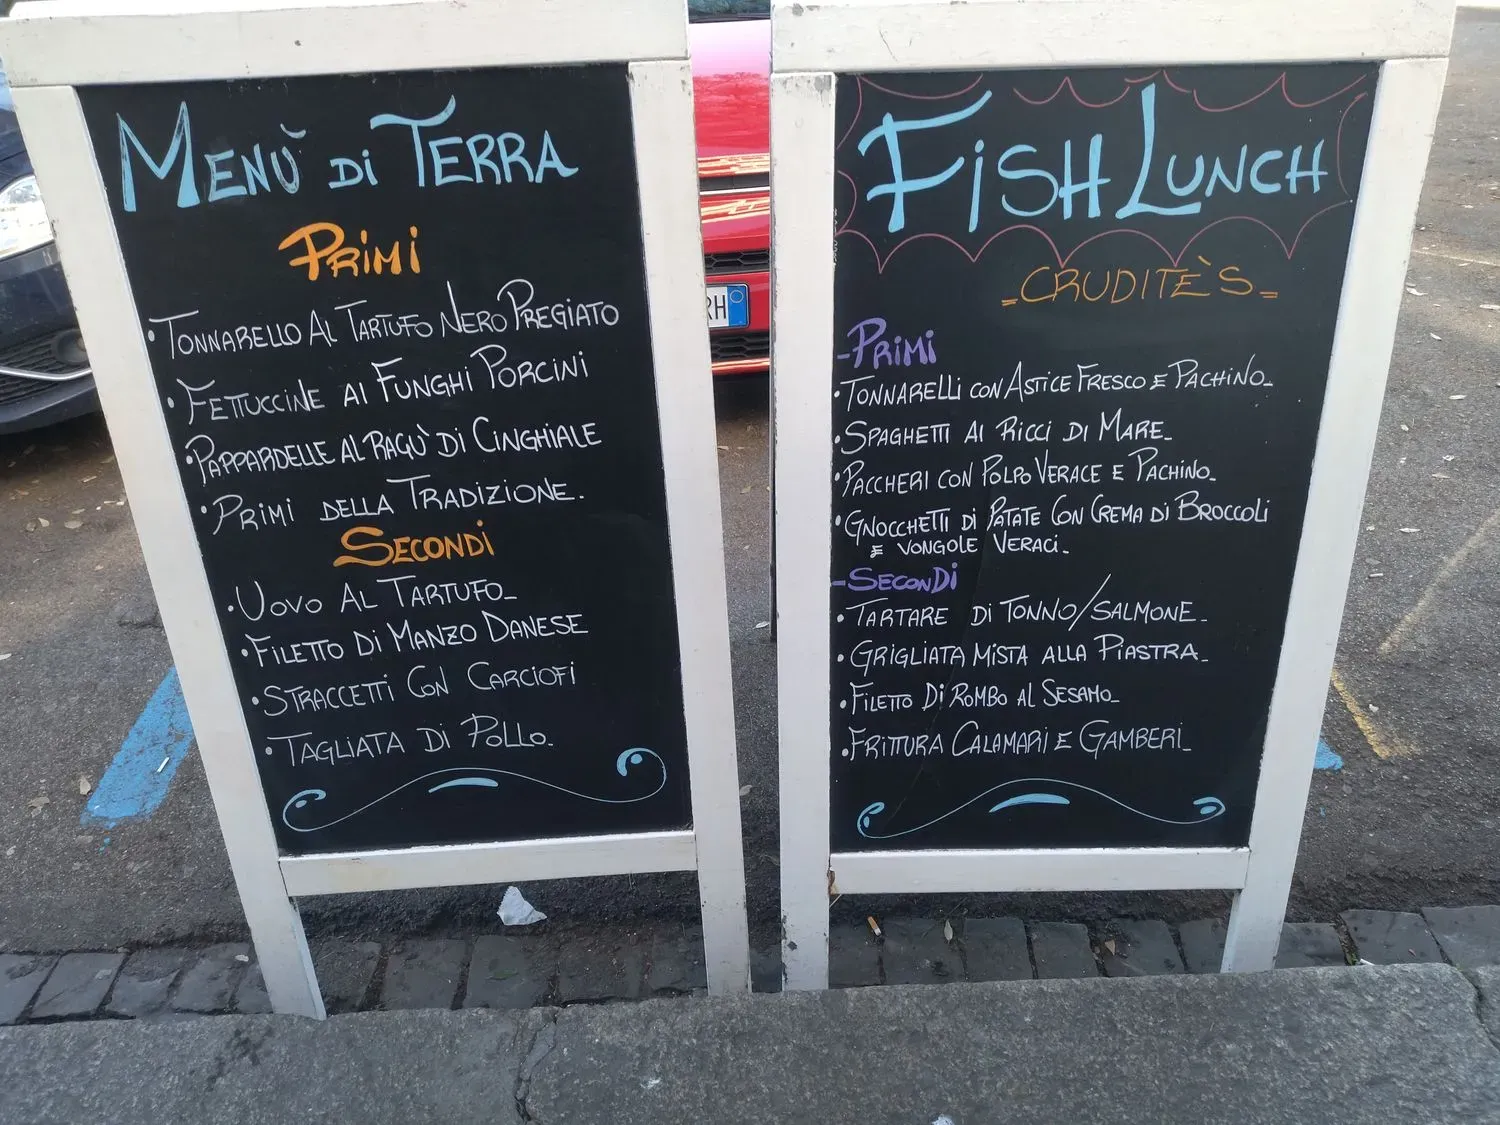 MENÙ DI TERRA
PRIMI
•TONNARELLO AL TARTUFO NERO PREGIATO
•FETTUCCINE AI FUNGHI PORCINI
•PAPPARDELLE AL RAGÙ DI CINGHIALE
•PRIMI DELLA TRADIZIONE.
SECONDI
•UOVO AL TARTUFO_
•FILETTO DI MANZO DANESE
•STRACCETTI CON CARCIOFI
•TAGLIATA DI POLLO.
FISH LUNCH
=CRUDITÈS=
-PRIMI
•TONNARELLI CON ASTICE FRESCO E PACHINO_
•SPAGHETTI AI RICCI DI MARE_
•PACCHERI CON POLPO VERACE E PACHINO_
•GNOCCHETTI DI PATATE CON CREMA DI BROCCOLI
E VONGOLE VERACI_
-SECONDI
•TARTARE DI TONNO/SALMONE_
•GRIGLIATA MISTA ALLA PIASTRA_
•FILETTO DI ROMBO AL SESAMO_
•FRITTURA CALAMARI E GAMBERI_
RH